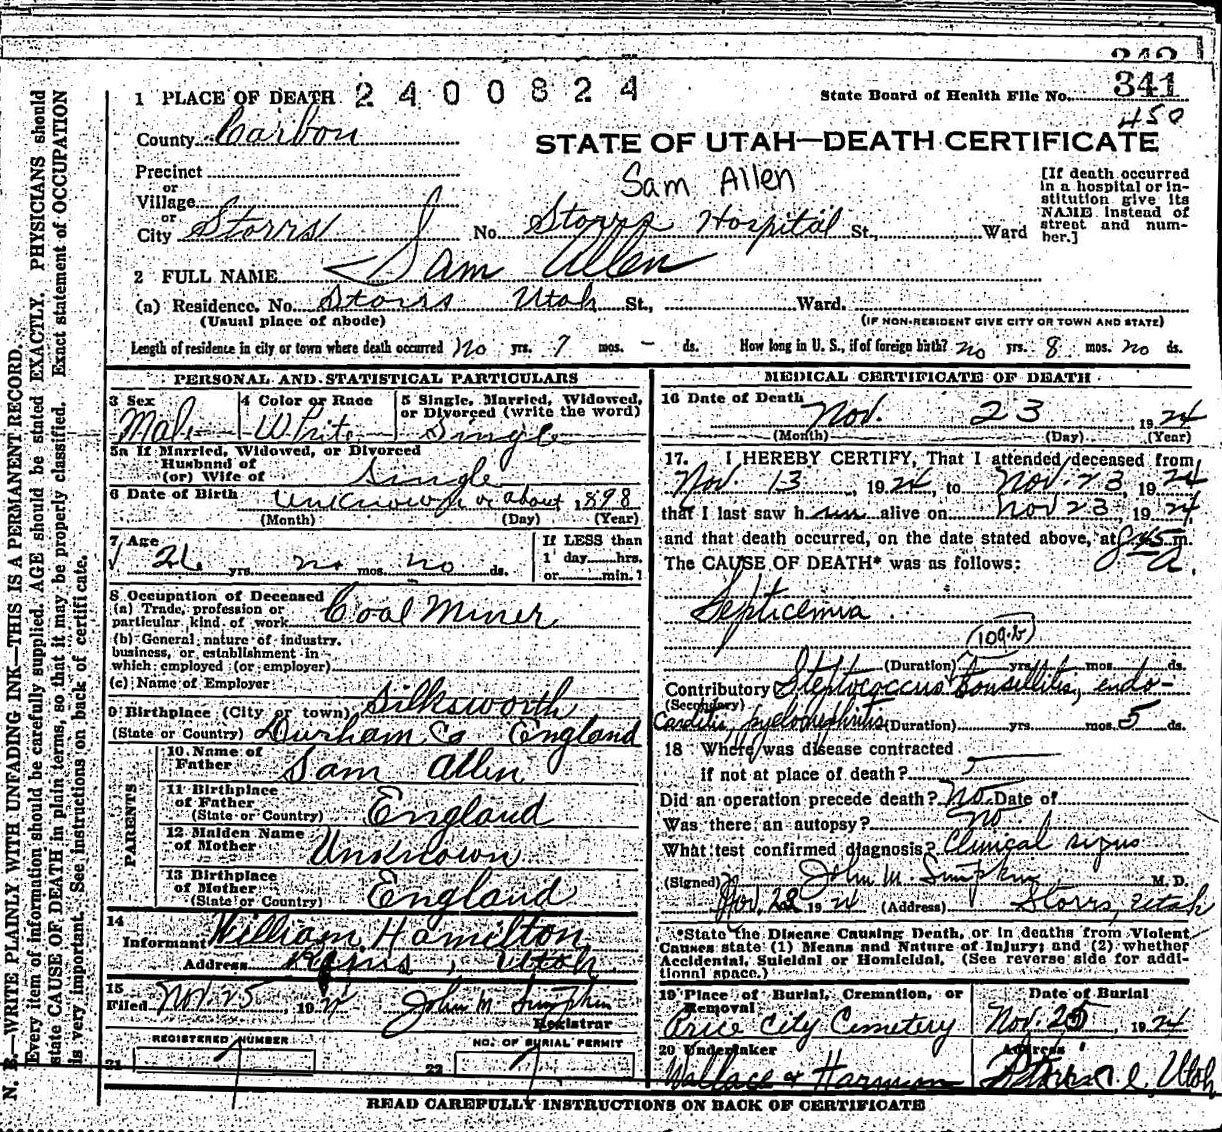 342
341
1 PLACE OF DEATH 2400824 State Board of Health File No. 450
County Carbon STATE OF UTAH—DEATH CERTIFICATE
Precinct Sam Allen
or
Village
or
City Storrs No. Storrs Hospital St., Ward
[If death occurred
in a hospital or in-
stitution give its
NAME instead of
street and num-
ber.]
2 FULL NAME Sam Allen
(a) Residence. No. Storrs Utah St., Ward.
(Usual place of abode) (IF NON-RESIDENT GIVE CITY OR TOWN AND STATE)
Length of residence in city or town where death occurred no yrs. 7 mos. - ds. How long in U. S., if of foreign birth? no yrs. 8 mos. no ds.
PERSONAL AND STATISTICAL PARTICULARS
3 Sex 4 Color or Race 5 Single, Married, Widowed,
or Divorced (write the word)
Male White Single
5a If Married, Widowed, or Divorced
Husband of
(or) Wife of Single
6 Date of Birth Unknown or about 1898
(Month) (Day) (Year)
7 Age If LESS than
26 yrs. no mos. no ds. 1 day hrs.
or min.?
8 Occupation of Deceased
(a) Trade, profession or
particular kind of work Coal Miner
(b) General nature of industry,
business, or establishment in
which employed (or employer)
(c) Name of Employer
9 Birthplace (City or town) Silksworth
(State or Country) Durham Co England
PARENTS
10 Name of
Father Sam Allen
11 Birthplace
of Father
(State or Country) England
12 Maiden Name
of Mother Unknown
13 Birthplace
of Mother
(State or Country) England
14
Informant William Hamilton
Address Rains, Utah
15
Filed Nov. 25, 1924 John M. Simpkin
Registrar
REGISTERED NUMBER NO. OF BURIAL PERMIT
21 7 22 7
MEDICAL CERTIFICATE OF DEATH
16 Date of Death Nov. 23 1924
(Month) (Day) (Year)
17. I HEREBY CERTIFY, That I attended deceased from
Nov. 13, 1924, to Nov. 23, 1924
that I last saw him alive on Nov 23, 1924
and that death occurred, on the date stated above, at 8:45 m.
The CAUSE OF DEATH* was as follows: A.
Septicemia
109.b
(Duration) yrs. mos. ds.
Contributory Streptococcus tonsillitis, endo-
(Secondary)
carditis, pyelonephritis (Duration) yrs. mos. 5 ds.
18 Where was disease contracted
if not at place of death?
Did an operation precede death? No Date of
Was there an autopsy? No
What test confirmed diagnosis? Clinical signs
(Signed) John M. Simpkin M. D.
Nov. 23 1924 (Address) Storrs, Utah
*State the Disease Causing Death, or in deaths from Violent
Causes state (1) Means and Nature of Injury; and (2) whether
Accidental, Suicidal or Homicidal. (See reverse side for addi-
tional space.)
19 Place of Burial, Cremation, or Date of Burial
Removal
Price City Cemetery Nov. 25, 1924
20 Undertaker Address
Wallace & Harmon Utah
READ CAREFULLY INSTRUCTIONS ON BACK OF CERTIFICATE
N. B.—WRITE PLAINLY WITH UNFADING INK—THIS IS A PERMANENT RECORD.
Every item of information should be carefully supplied. AGE should be stated EXACTLY. PHYSICIANS should
state CAUSE OF DEATH in plain terms, so that it may be properly classified. Exact statement of OCCUPATION
is very important. See instructions on back of certificate.